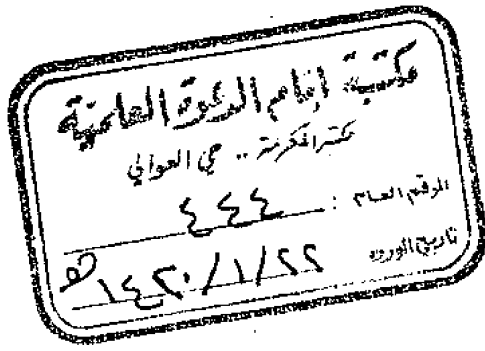 مكتبة إمام الدعوة العلمية
مكة المكرمة .. حي العوالي
الرقم العام : ٤٤٤
تاريخ الورود ١٤٢٠/١/٢٢ هـ